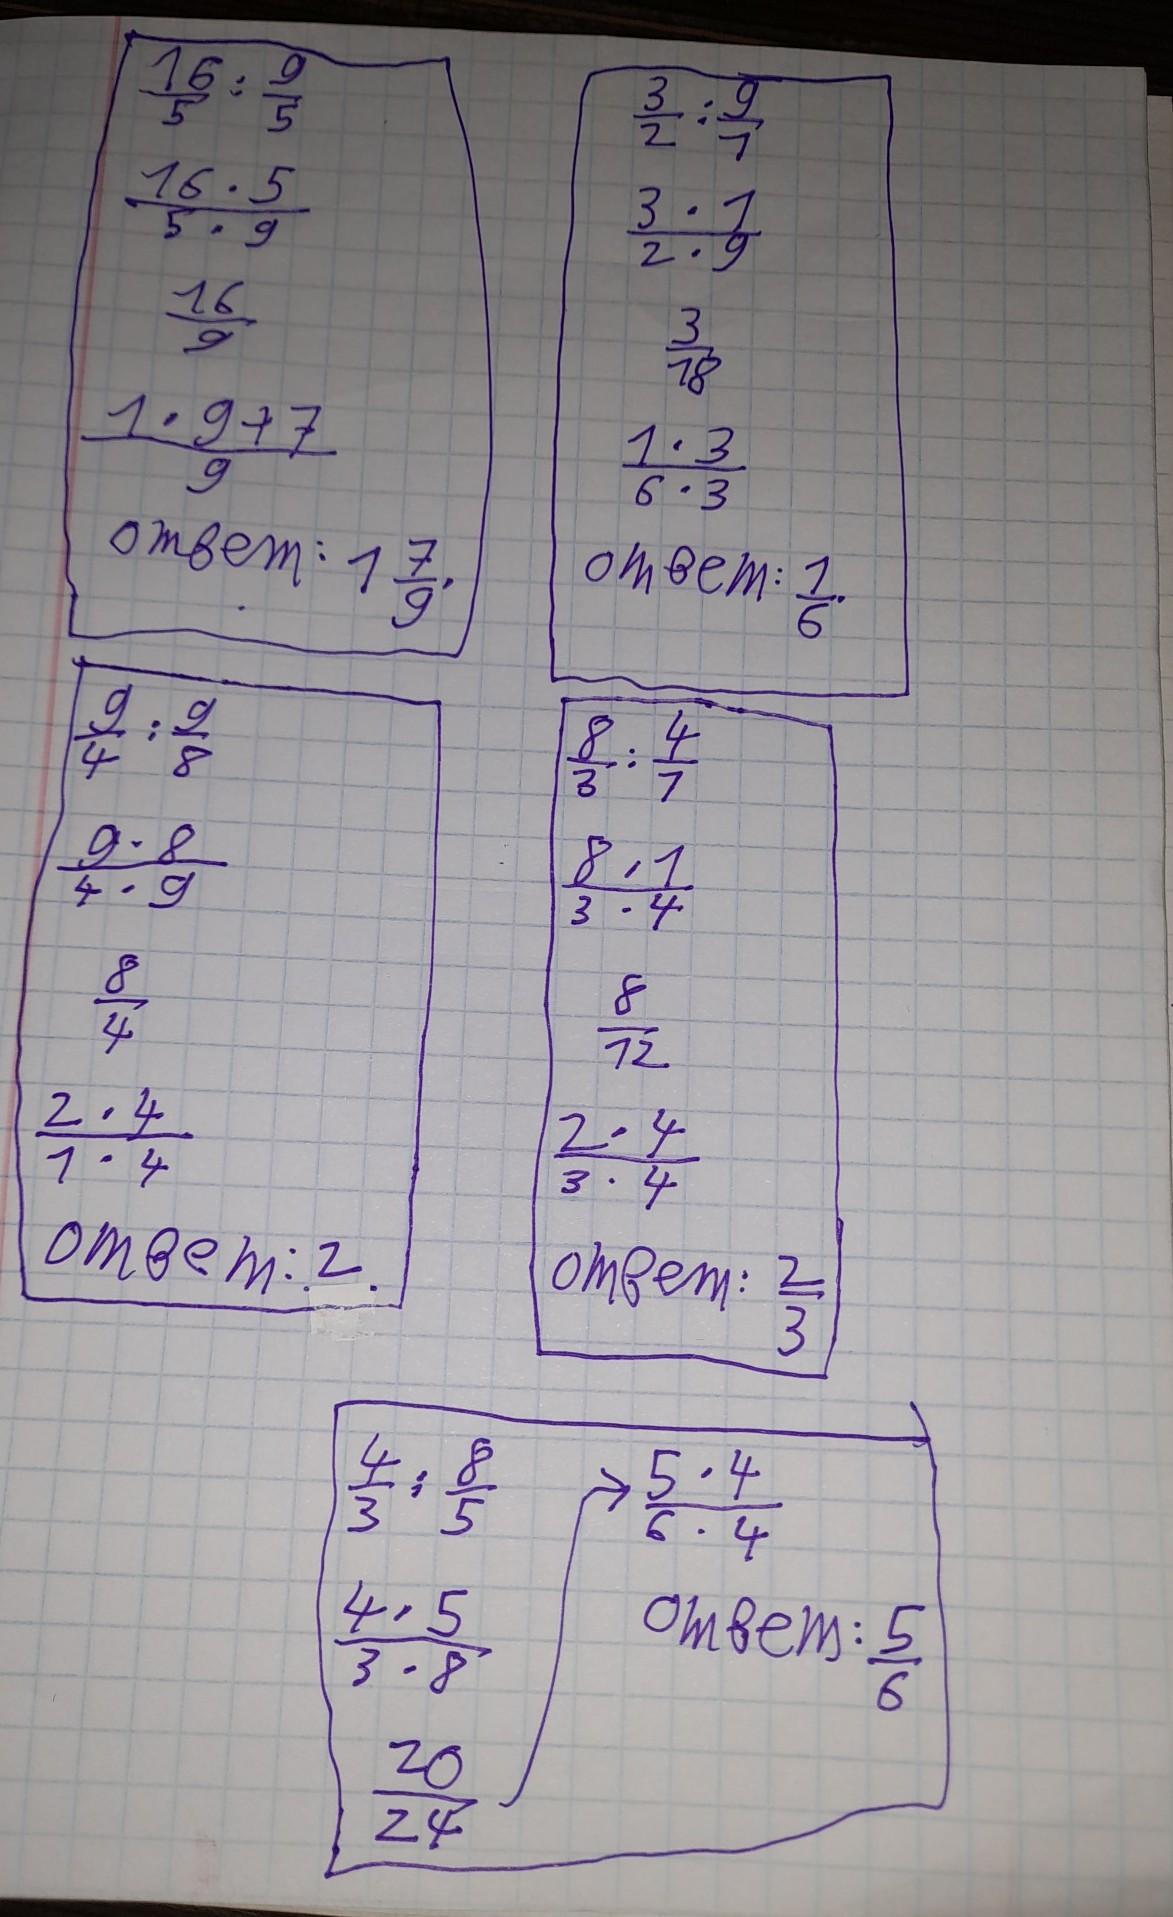 16/5 : 9/5
16 · 5 / 5 · 9
16/9
1 · 9 + 7 / 9
ответ: 1 7/9.
3/2 : 9/1
3 · 1 / 2 · 9
3/18
1 · 3 / 6 · 3
ответ: 1/6.
9/4 : 9/8
9 · 8 / 4 · 9
8/4
2 · 4 / 1 · 4
ответ: 2.
8/3 : 4/1
8 · 1 / 3 · 4
8/12
2 · 4 / 3 · 4
ответ: 2/3
4/3 : 8/5
4 · 5 / 3 · 8
20/24
5 · 4 / 6 · 4
ответ: 5/6